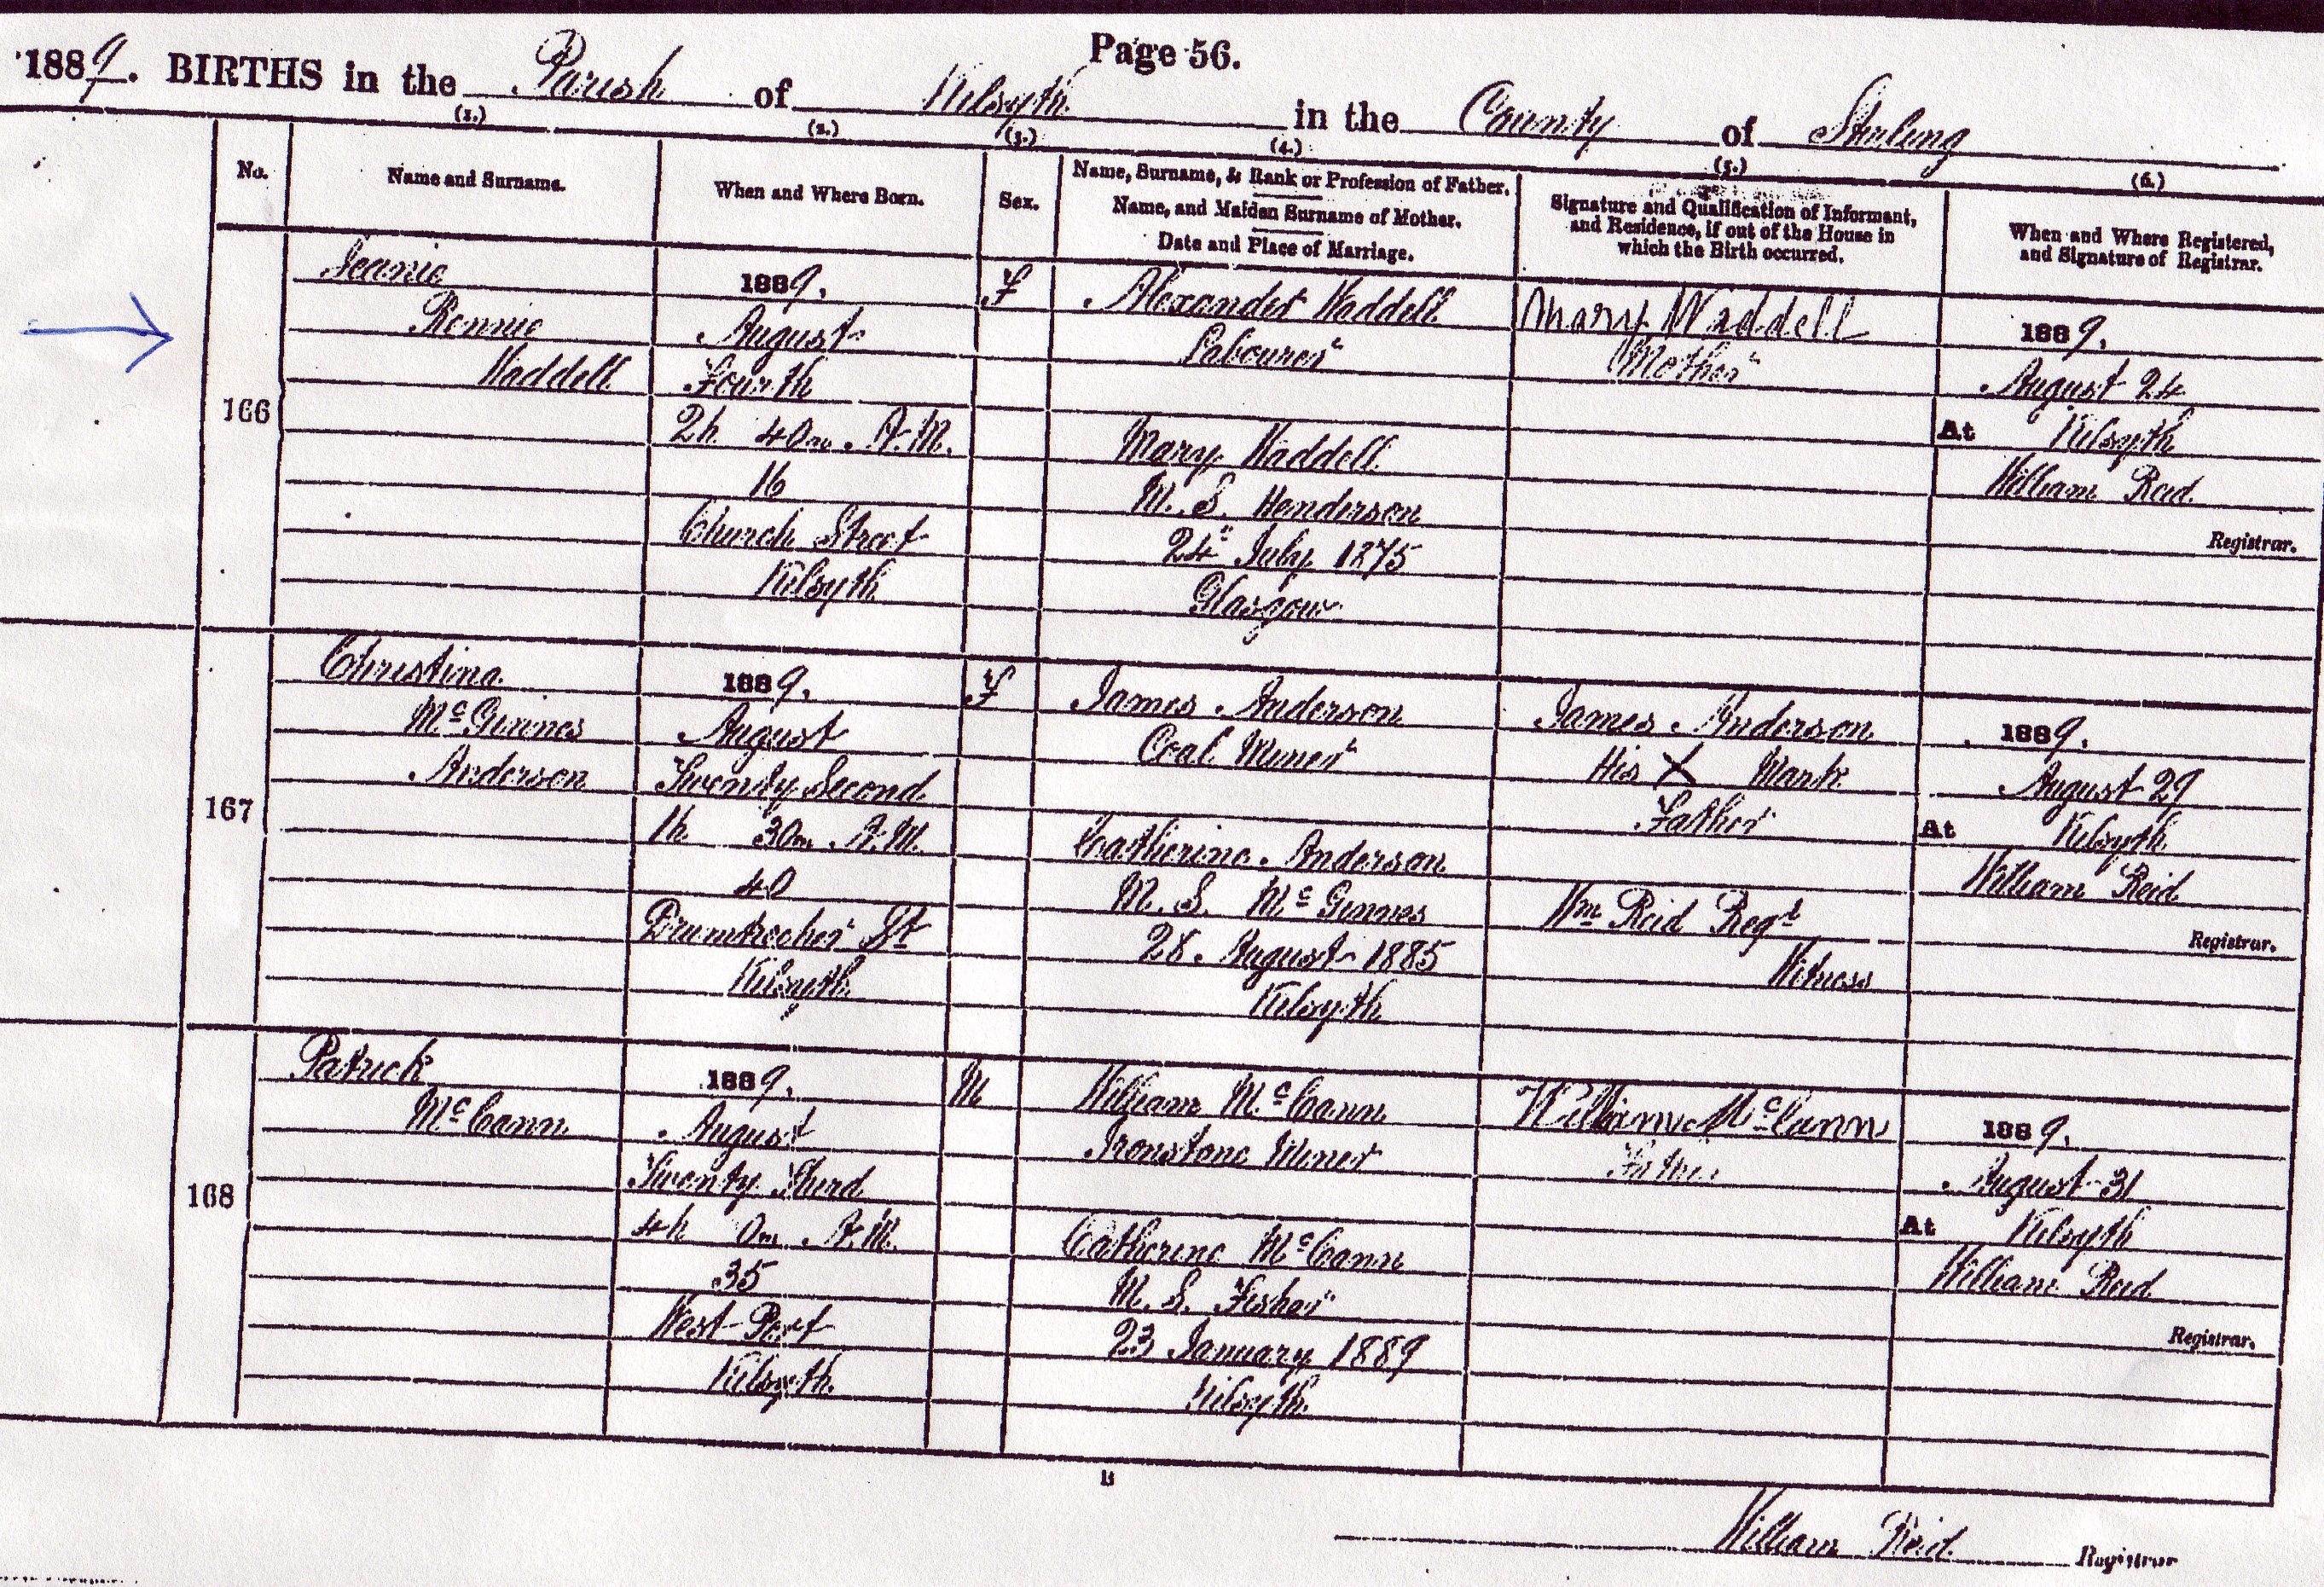 Page 56.
1889. BIRTHS in the Parish of Kilsyth in the County of Stirling
(1.) (2.) (3.) (4.) (5.) (6.)
No.
Name and Surname.
When and Where Born.
Sex.
Name, Surname, & Rank or Profession of Father.
Name, and Maiden Surname of Mother.
Date and Place of Marriage.
Signature and Qualification of Informant,
and Residence, if out of the House in
which the Birth occurred.
When and Where Registered,
and Signature of Registrar.
166
Jeanie
Rennie
Waddell
1889.
August
Fourth
2h 40m A.M.
16
Church Street
Kilsyth
F
Alexander Waddell
Labourer
Mary Waddell
M. S. Henderson
24" July 1875
Glasgow
Mary Waddell
Mother
1889.
August 24
At Kilsyth
William Reid
Registrar.
167
Christina
McGinnes
Anderson
1889.
August
Twenty Second
1h 30m A.M.
40
Drumtrocher St
Kilsyth
F
James Anderson
Coal Miner
Catherine Anderson
M. S. McGinnes
28. August 1885
Kilsyth
James Anderson
His X Mark
Father
Wm Reid Regt
Witness
1889.
August 29
At Kilsyth
William Reid
Registrar.
168
Patrick
McCann
1889.
August
Twenty Third
4h 0m A.M.
35
West Port
Kilsyth
M
William McCann
Ironstone Miner
Catherine McCann
M. S. Fisher
23 January 1889
Kilsyth
William McCann
Father
1889.
August 31
At Kilsyth
William Reid
Registrar.
B
William Reid Registrar